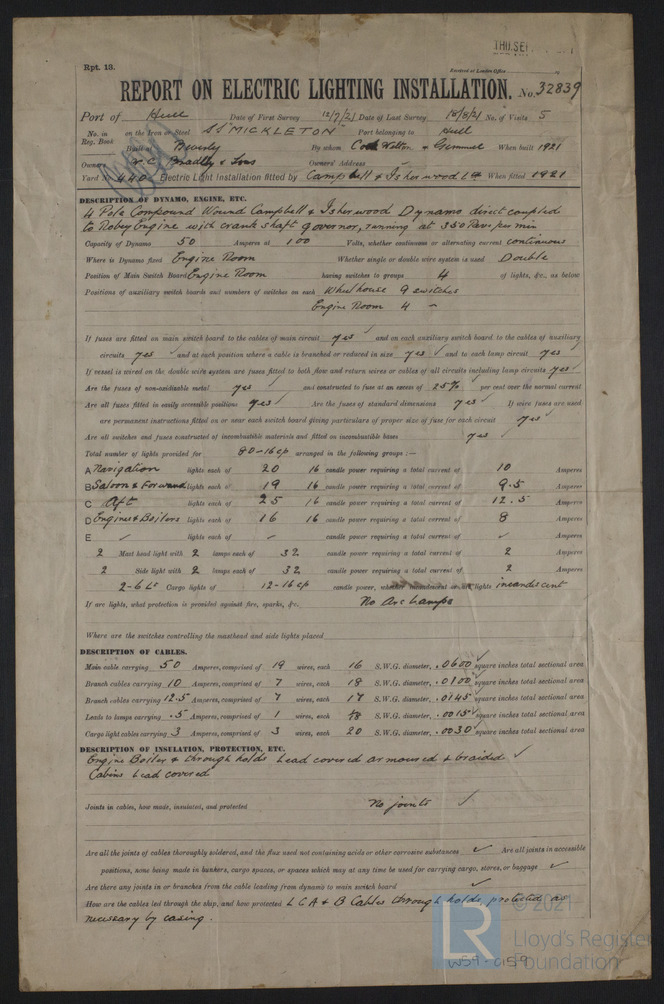 THU. SE
Rpt. 13.
Received at London Office
REPORT ON ELECTRIC LIGHTING INSTALLATION. No. 32839
Port of Hull Date of First Survey 12/7/21 Date of Last Survey 18/8/21 No. of Visits 5
No. in Reg. Book on the Iron or Steel SS "MICKLETON" Port belonging to Hull
Built at Beverley By whom Cook Welton & Gemmell When built 1921
Owners Bradley & Sons Owners' Address
Yard No. 440 Electric Light Installation fitted by Campbell & Isherwood Ld When fitted 1921
DESCRIPTION OF DYNAMO, ENGINE, ETC.
4 Pole Compound Wound Campbell & Isherwood Dynamo direct coupled
to Robey Engine with crank shaft governor, running at 350 Revs per min
Capacity of Dynamo 50 Amperes at 100 Volts, whether continuous or alternating current continuous
Where is Dynamo fixed Engine Room Whether single or double wire system is used Double
Position of Main Switch Board Engine Room having switches to groups 4 of lights, &c., as below
Positions of auxiliary switch boards and numbers of switches on each Wheelhouse 9 switches
Engine Room 4 "
If fuses are fitted on main switch board to the cables of main circuit yes and on each auxiliary switch board to the cables of auxiliary
circuits yes and at each position where a cable is branched or reduced in size yes and to each lamp circuit yes
If vessel is wired on the double wire system are fuses fitted to both flow and return wires or cables of all circuits including lamp circuits yes
Are the fuses of non-oxidizable metal yes and constructed to fuse at an excess of 25% per cent over the normal current
Are all fuses fitted in easily accessible positions yes Are the fuses of standard dimensions yes If wire fuses are used
are permanent instructions fitted on or near each switch board giving particulars of proper size of fuse for each circuit yes
Are all switches and fuses constructed of incombustible materials and fitted on incombustible bases yes
Total number of lights provided for 80-16cp arranged in the following groups :—
A Navigation lights each of 20 16 candle power requiring a total current of 10 Amperes
B Saloon & Forward lights each of 19 16 candle power requiring a total current of 9.5 Amperes
C Aft lights each of 25 16 candle power requiring a total current of 12.5 Amperes
D Engines & Boilers lights each of 16 16 candle power requiring a total current of 8 Amperes
E ✓ lights each of ✓ candle power requiring a total current of ✓ Amperes
2 Mast head light with 2 lamps each of 32 candle power requiring a total current of 2 Amperes
2 Side light with 2 lamps each of 32 candle power requiring a total current of 2 Amperes
2-6 Lt Cargo lights of 12-16cp candle power, whether incandescent or arc lights incandescent
If arc lights, what protection is provided against fire, sparks, &c. No Arc Lamps
Where are the switches controlling the masthead and side lights placed
DESCRIPTION OF CABLES.
Main cable carrying 50 Amperes, comprised of 19 wires, each 16 S.W.G. diameter, .0600 square inches total sectional area
Branch cables carrying 10 Amperes, comprised of 7 wires, each 18 S.W.G. diameter, .0100 square inches total sectional area
Branch cables carrying 12.5 Amperes, comprised of 7 wires, each 17 S.W.G. diameter, .0145 square inches total sectional area
Leads to lamps carrying .5 Amperes, comprised of 1 wires, each 18 S.W.G. diameter, .0015 square inches total sectional area
Cargo light cables carrying 3 Amperes, comprised of 3 wires, each 20 S.W.G. diameter, .0030 square inches total sectional area
DESCRIPTION OF INSULATION, PROTECTION, ETC.
Engine Boiler & through holds Lead covered armoured & braided ✓
Cabins Lead covered
Joints in cables, how made, insulated, and protected No joints ✓
Are all the joints of cables thoroughly soldered, and the flux used not containing acids or other corrosive substances ✓ Are all joints in accessible
positions, none being made in bunkers, cargo spaces, or spaces which may at any time be used for carrying cargo, stores, or baggage ✓
Are there any joints in or branches from the cable leading from dynamo to main switch board ✓
How are the cables led through the ship, and how protected L C A & B Cables through holds, protected as
necessary by casing.
© 2021
LR
Lloyd's Register
Foundation
W59-0159